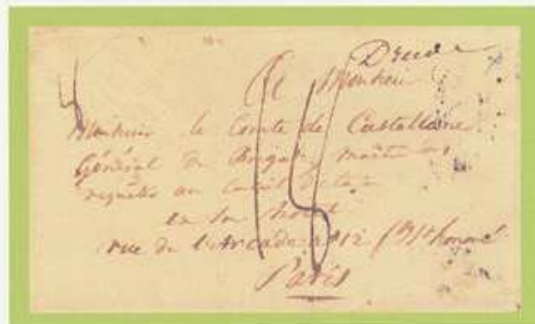 A Monsieur
Monsieur le Comte de Castellane
Général de Brigade maître des
requêtes au Conseil d'etat
en son hôtel
rue de l'Arcade n° 12 f g St honoré
Paris